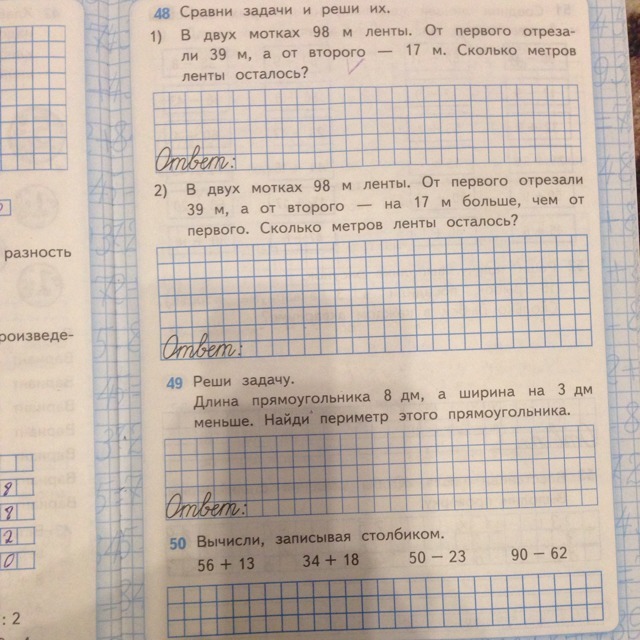 48 Сравни задачи и реши их.
1) В двух мотках 98 м ленты. От первого отреза-
ли 39 м, а от второго — 17 м. Сколько метров
ленты осталось?
Ответ:
2) В двух мотках 98 м ленты. От первого отрезали
39 м, а от второго — на 17 м больше, чем от
первого. Сколько метров ленты осталось?
Ответ:
49 Реши задачу.
Длина прямоугольника 8 дм, а ширина на 3 дм
меньше. Найди периметр этого прямоугольника.
Ответ:
50 Вычисли, записывая столбиком.
56 + 13 34 + 18 50 − 23 90 − 62
разность
роизведе-
8
8
2
0
: 2